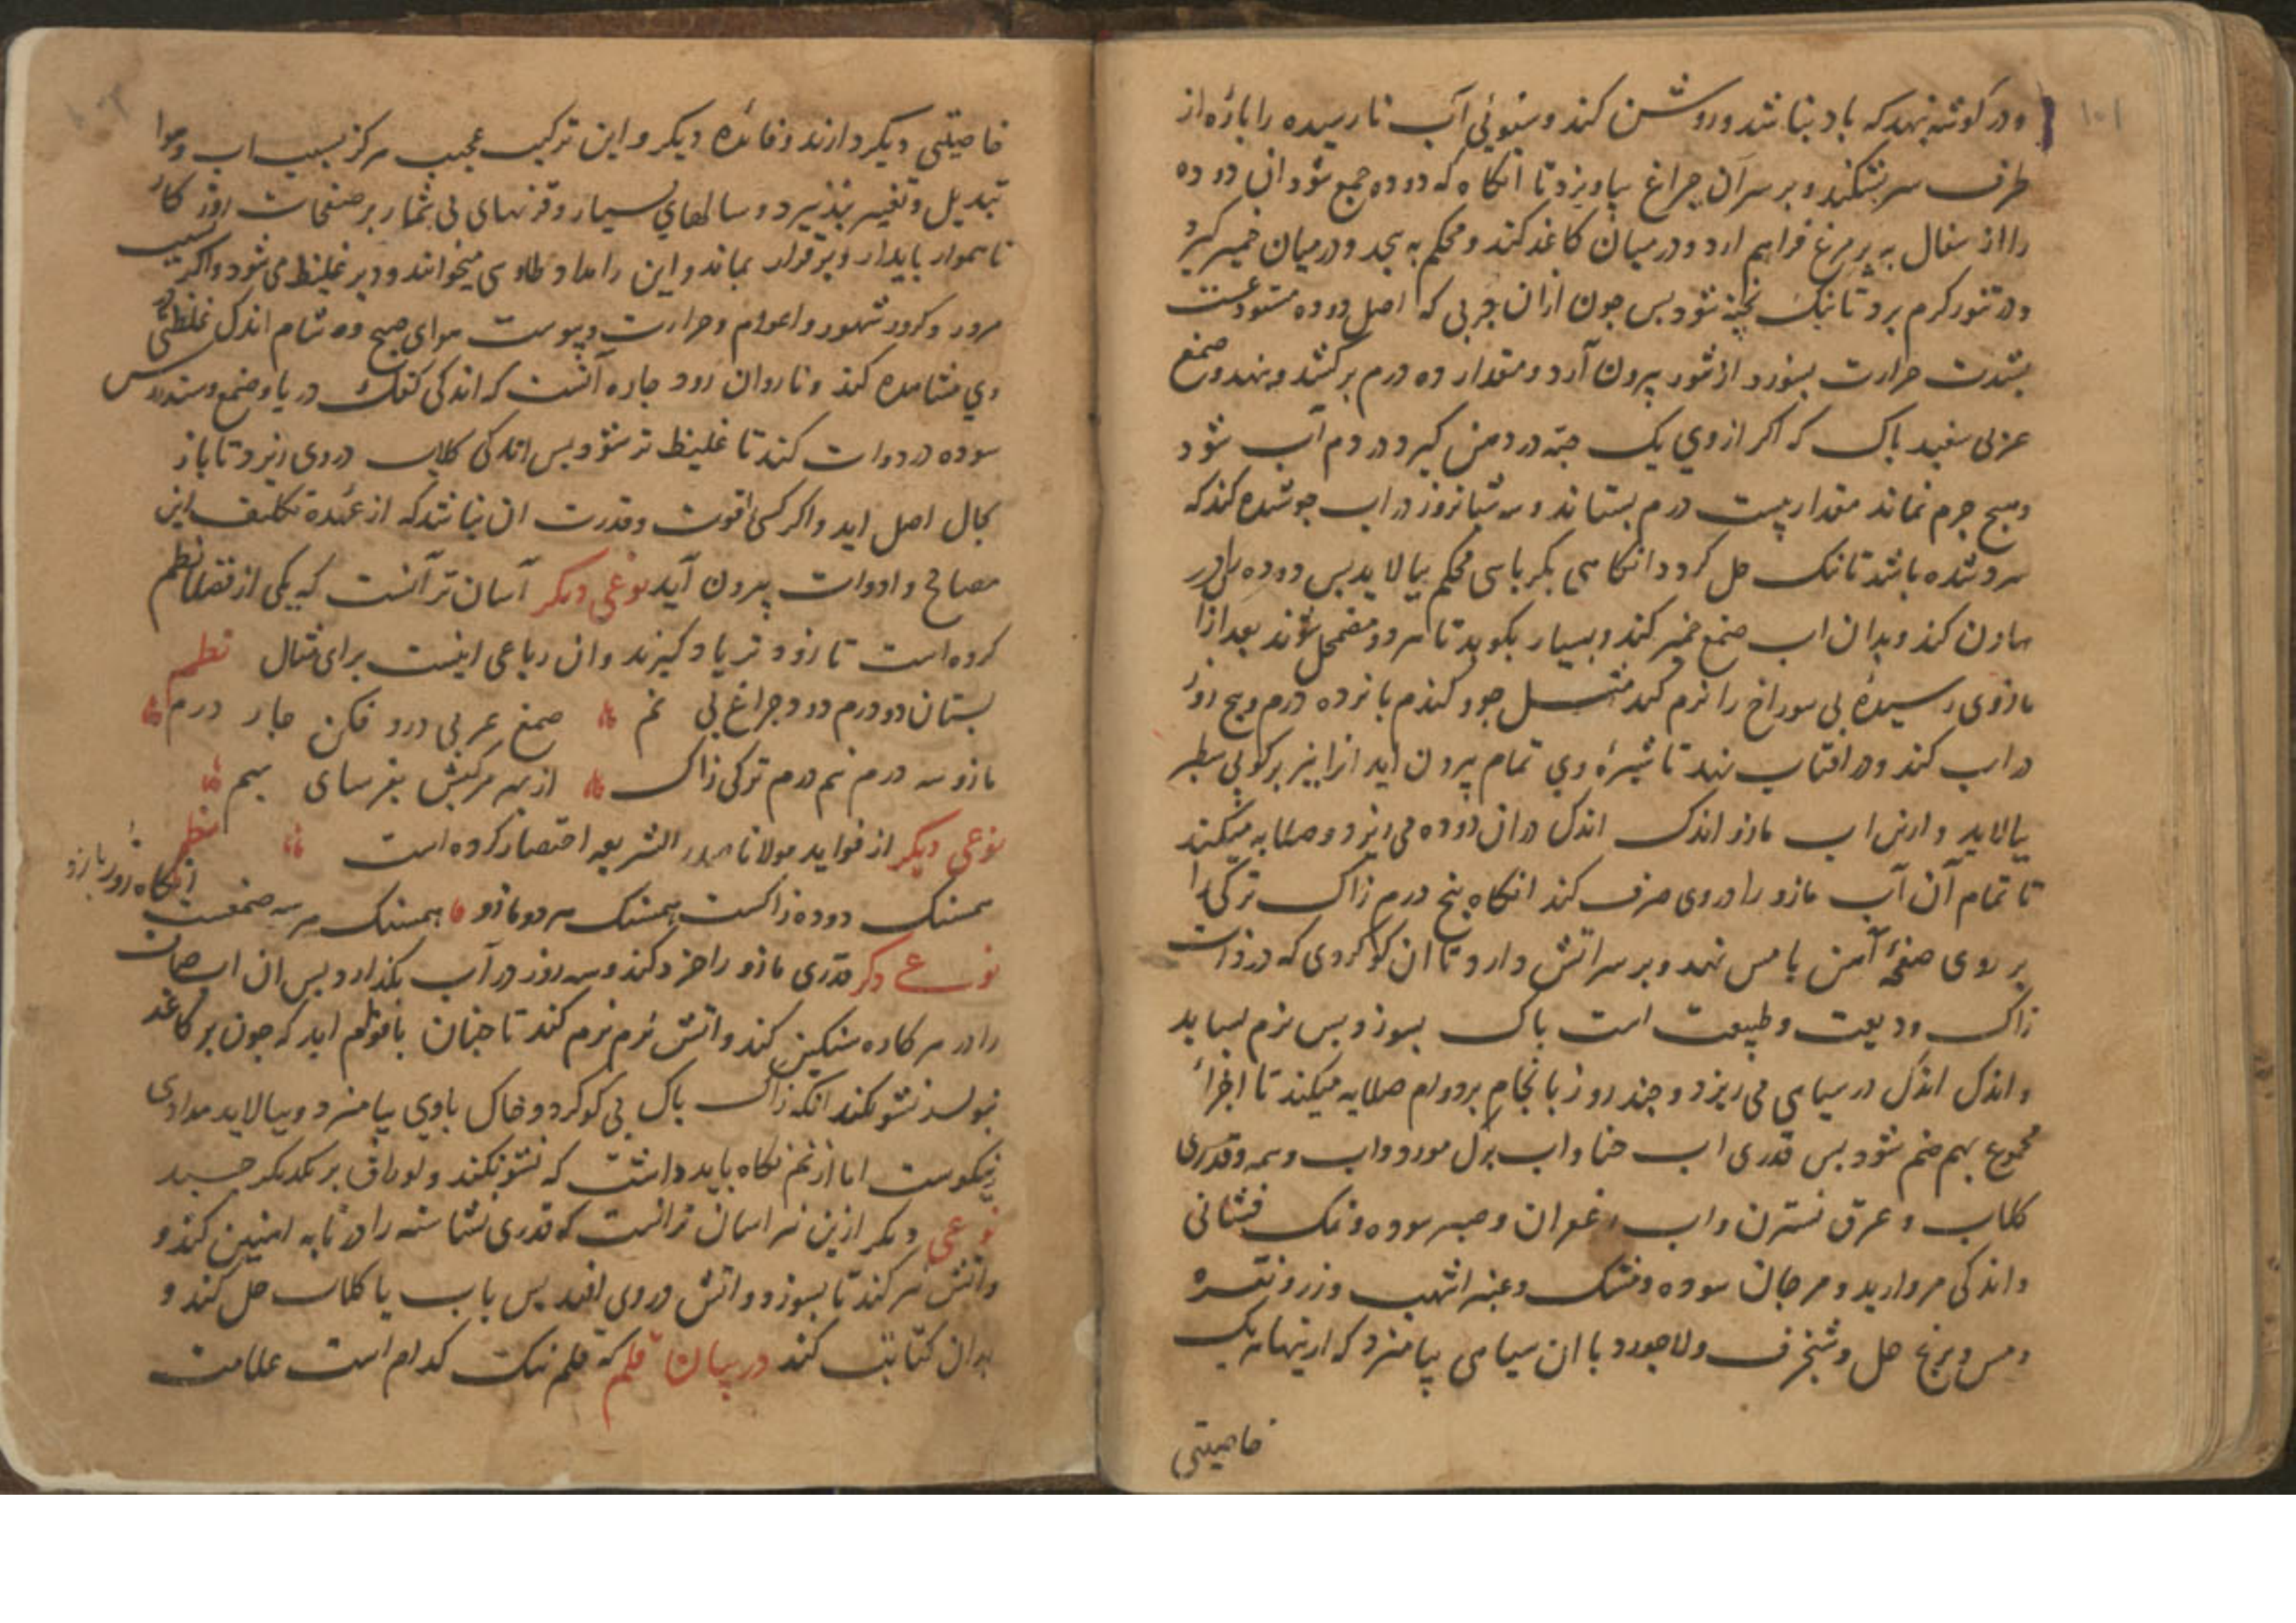 ۱۰۱
و در کوشه نهد که باد نباشد و روشن کند و سبوئی آب نارسیده را پاره از
طرف سر بشکند و بر سر آن چراغ بیاویزد تا انکاه که دوده جمع شود ان دوده
را از سفال به پر مرغ فراهم ارد و در میان کاغذ کند و محکم به پیچد و در میان خمیر کیرد
و در تنور کرم برد تا نیک پخته شود پس چون ازان چربی که اصل دوده مستودعست
بشدت حرارت بسوزد از تنور بیرون آرد و مقدار ده درم برکشد و بنهد و صمغ
عربی سفید پاک که اکر از وی یک حبه در دهن کیرد در دم آب شود
و هیچ جرم نماند مقدار بیست درم بستاند و سه شبانروز در اب جوشیده کند که
سرد شده باشد تا نیک حل کردد انکاه بکرباسی محکم بپالاید پس دوده را در
هاون کند و بدان اب صمغ خمیر کند و بسیار بکوبد تا هر دو مضمحل شوند بعد ازان
مازوی رسیدهٔ بی سوراخ را نرم کند مثل جو و کندم پانزده درم و پنج روز
در اب کند و در افتاب نهد تا شیرهٔ وی تمام بیرون اید انرا نیز بر کوپی سطبر
بپالاید و ازین اب مازو اندک اندک دران دوده می ریزد و صلابه میکند
تا تمام آن آب مازو را در وی صرف کند انکاه پنج درم زاک ترکی را
بر روی صفحهٔ آهن یا مس نهد و بر سر اتش دارد تا ان کوکردی که در ذات
زاک ودیعت و طبیعت است پاک بسوزد پس نرم بساید
و اندک اندک در سیاهی می ریزد و چند روز بانجام بر دوام صلابه میکند تا اجزاء
مجموع بهم ضم شود پس قدری اب حنا و اب برک مورد و اب وسمه و قدری
کلاب و عرق نسترن و اب زعفران و صبر سوده و نمک فشانی
و اندکی مروارید و مرجان سوده و مشک و عنبر اشهب و زر و نقره
و مس و برنج حل و شنجرف و لاجورد با ان سیاهی بیامیزد که ازینها هر یک
خاصیتی
۱۰۲
خاصیتی دیکر دارند و فائده دیکر و این ترکیب عجیب هرکز بسبب اب و هوا
تبدیل و تغییر نپذیرد و سالهای بسیار و قرنهای بی شمار بر صفحات روزکار
ناهموار پایدار و برقرار بماند و این را مداد طاوسی میخوانند و دیر غلیظ می شود و اکر بسبب
مرور و کرور شهور و اعوام و حرارت و یبوست هوای صبح و شام اندک غلظتی در
وی مشاهده کند و ناروان رود چاره آنست که اندکی کفک دریا و صمغ و سندروس
سوده در دوات کند تا غلیظ تر شود پس اندکی کلاب در وی ریزد تا باز
بحال اصل اید و اکر کسی را قوت و قدرت ان نباشد که از عهده تکلیف این
مصالح و ادوات بیرون آید نوعی دیکر آسان تر آنست که یکی از فضلا نظم
کرده است تا زودتر یاد کیرند وان رباعی اینست برای مثال نظم
بستان دو درم دود چراغ بی نم صمغ عربی درو فکن چار درم
مازو سه درم نیم درم ترکی زاک از بهر مرکبش بفرسای بهم
نوعی دیکر از فواید مولانا صدر الشریعه اختصار کرده است نظم
همسنک دوده زاکست همسنک هر دو مازو همسنک هر سه صمغست انکاه زور بازو
نوعی دکر قدری مازو را خرد کند و سه روز در آب بکذارد پس ان اب صاف
را در هر کاده سنکین کند و اتش نرم نرم کند تا چنان با قوام اید که چون بر کاغذ
نویسد نشو نکند انکه زاک پاک بی کوکرد و خاک با وی بیامیزد و بپالاید مدادی
نیکوست اما از نم نکاه باید داشت که نشو نکند و اوراق بر یکدیکر چسپد
نوعی دیکر ازین نیز اسان تر انست که قدری نشاسته را در تابه اهنین کند و
و اتش نیز کند تا بسوزد و اتش در وی افتد پس باب یا کلاب حل کند و
بدان کتابت کند در بیان قلم که قلم نیک کدام است علامت